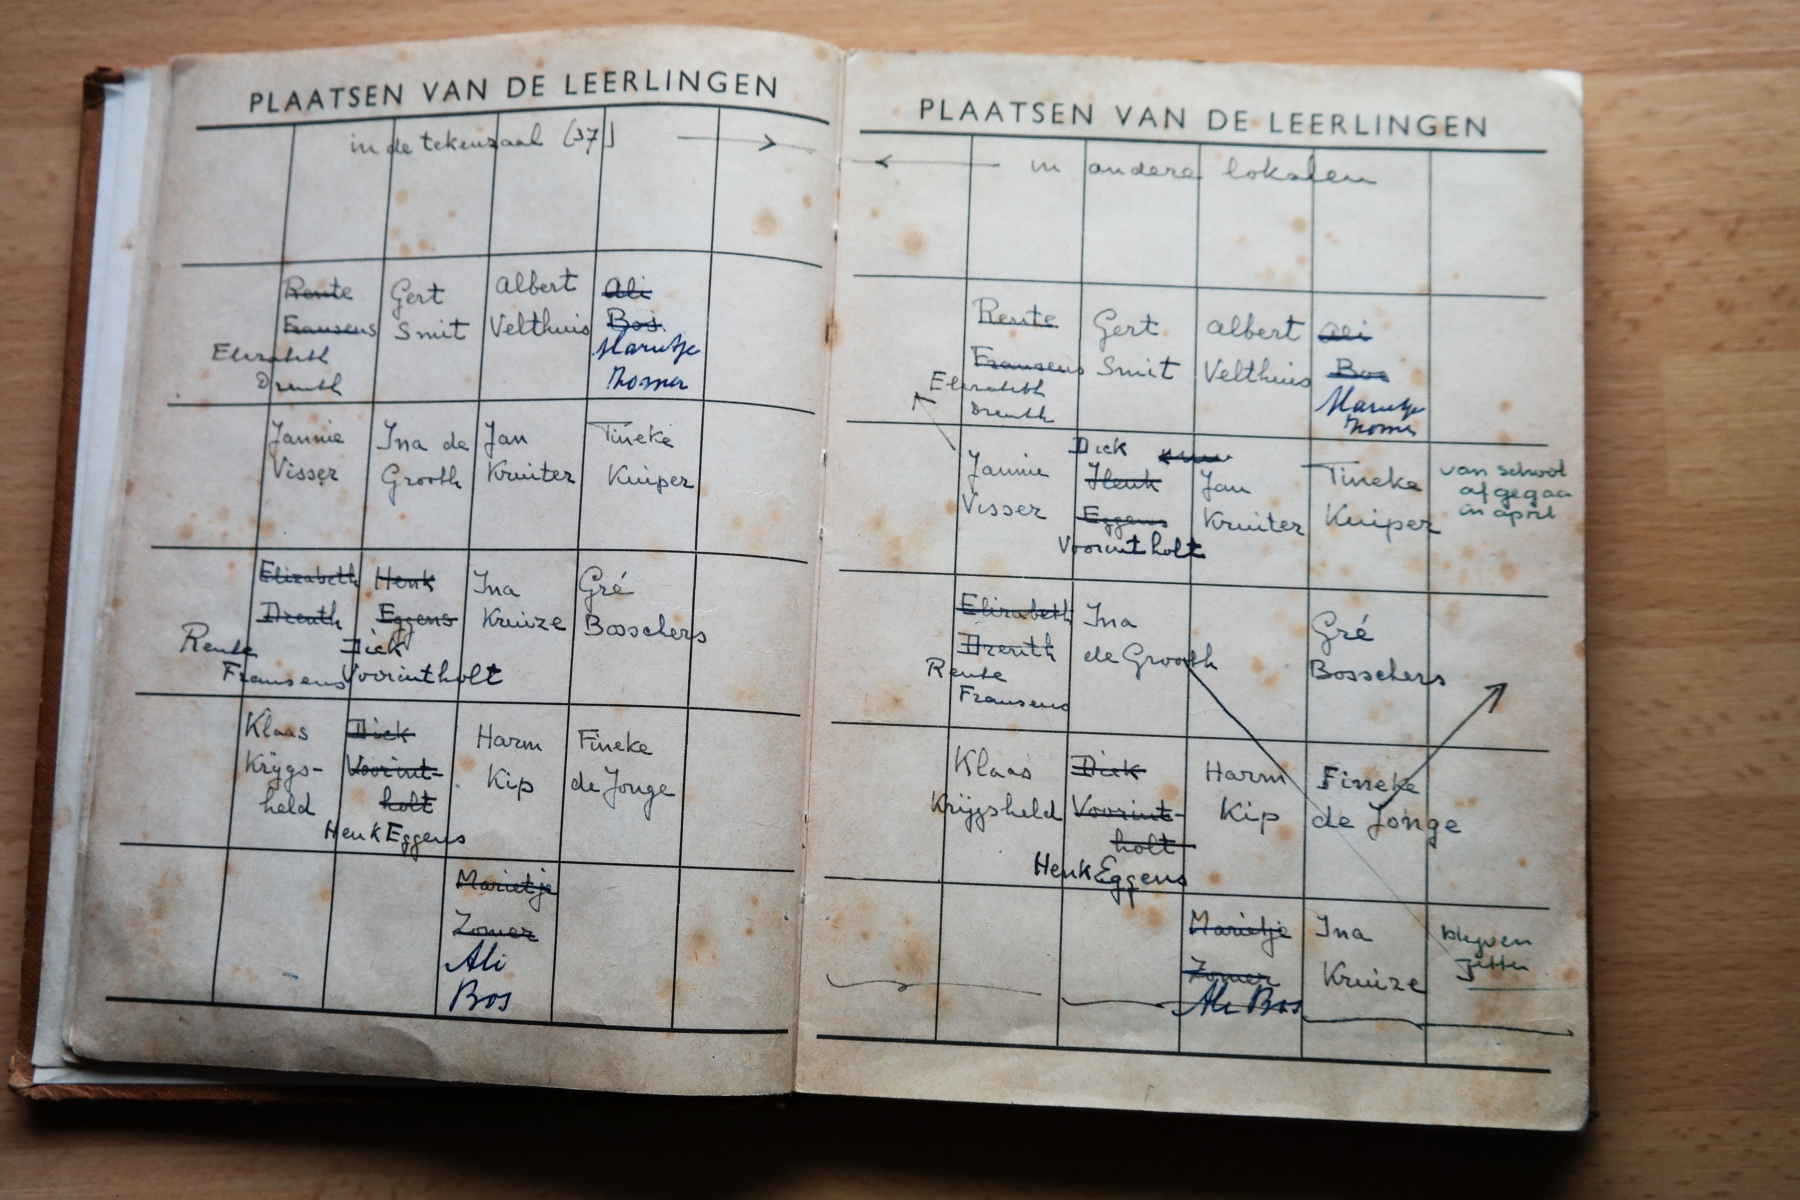 PLAATSEN VAN DE LEERLINGEN
in de tekenzaal (37)
Rente Gert Albert Ali
Fransens Smit Velthuis Bos
Elizabeth Marietje
Drenth Zomer
Jannie Ina de Jan Tineke
Visser Grooth Kruiter Kuiper
Elizabeth Henk Ina Gré
Drenth Eggens Kruize Bosschers
Rente Dick
Fransens Voorintholt
Klaas Dick Harm Fineke
Krijgs- Voorint- Kip de Jonge
held holt
Henk Eggens
Marietje
Zomer
Ali
Bos
PLAATSEN VAN DE LEERLINGEN
in andere lokalen
Rente Gert Albert Ali
Fransens Smit Velthuis Bos
Elizabeth Marietje
Drenth Zomer
Dick
Jannie Henk Jan Tineke van school
Visser Eggens Kruiter Kuiper afgegaa
Voorintholt in april
Elizabeth Ina Gré
Drenth de Grooth Bosschers
Rente
Fransens
Klaas Dick Harm Fineke
Krijgsheld Voorint- Kip de Jonge
holt
Henk Eggens
Marietje Ina blijven
Zomer Kruize zitten
Ali Bos